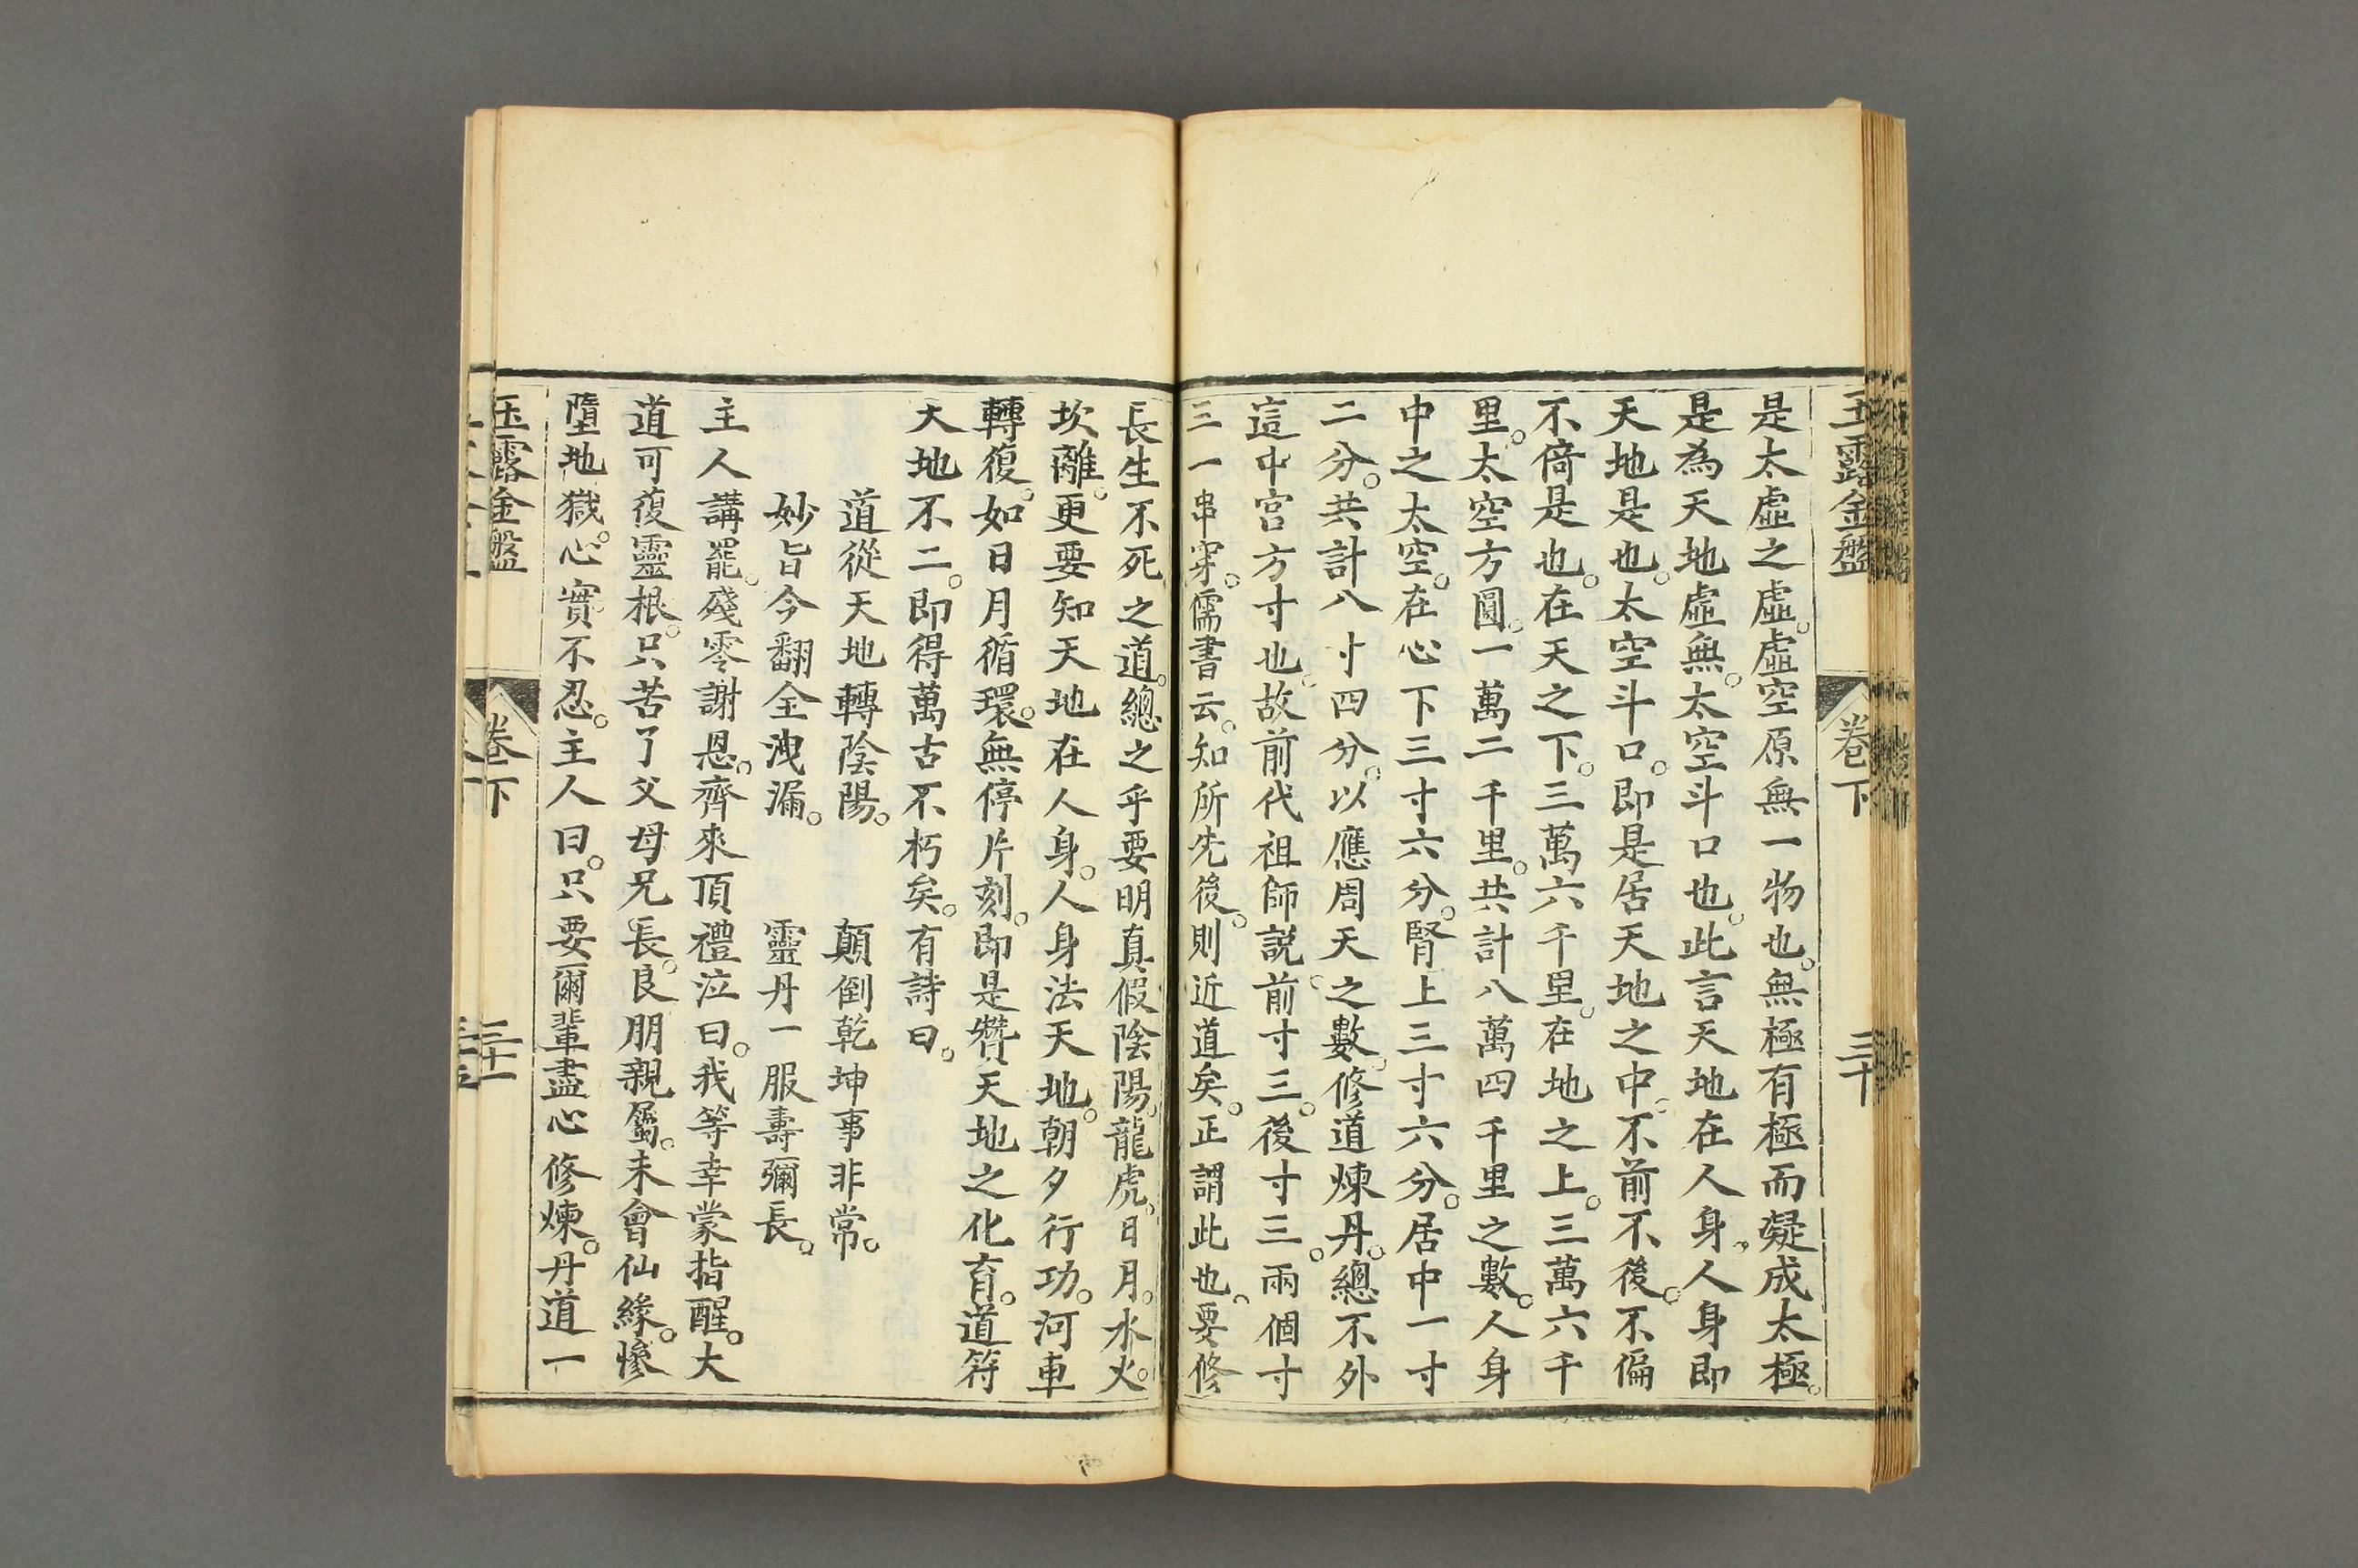 玉露金盤 卷下 三十
是太虛之虛。虛空原無一物也。無極有極而凝成太極。
是為天地虛無。太空斗口也。此言天地在人身。人身即
天地是也。太空斗口。即是居天地之中。不前不後。不偏
不倚是也。在天之下。三萬六千里。在地之上。三萬六千
里。太空方圓。一萬二千里。共計八萬四千里之數。人身
中之太空。在心下三寸六分。腎上三寸六分。居中一寸
二分。共計八寸四分。以應周天之數。修道煉丹。總不外
這中宮方寸也。故前代祖師說。前寸三。後寸三。兩個寸
三一串穿。儒書云。知所先後。則近道矣。正謂此也。要修
長生不死之道。總之乎要明真假陰陽。龍虎。日月。水火。
坎離。更要知天地在人身。人身法天地。朝夕行功。河車
轉復。如日月循環。無停片刻。即是贊天地之化育。道符
大地不二。即得萬古不朽矣。有詩曰。
道從天地轉陰陽。 顛倒乾坤事非常。
妙旨今翻全洩漏。 靈丹一服壽彌長。
主人講罷。殘零謝恩。齊來頂禮泣曰。我等幸蒙指醒。大
道可復靈根。只苦了父母兄長。良朋親屬。未會仙緣。慘
墮地獄。心實不忍。主人曰。只要爾輩盡心修煉。丹道一
玉露金盤 卷下 三十一